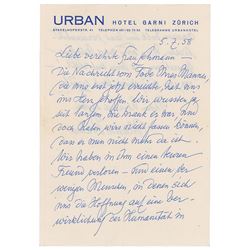 URBAN HOTEL GARNI ZÜRICH
STADELHOFERSTR. 41 TELEPHON 051/32 70 52 TELEGRAMME URBANHOTEL
5. 7. 58
Liebe verehrte Frau Johmann –
die Nachricht vom Tode Ihres Mannes,
die uns erst jetzt erreichte, hat uns
sehr getroffen. Wir wussten ja
seit langem, wie krank er war, und
doch haben wir es nicht fassen können,
dass er nun nicht mehr da ist.
Wir haben in ihm einen teuren
Freund verloren – und einen der
wenigen Menschen, an denen sich
uns die Hoffnung auf eine Ver-
wirklichung der Humanität in